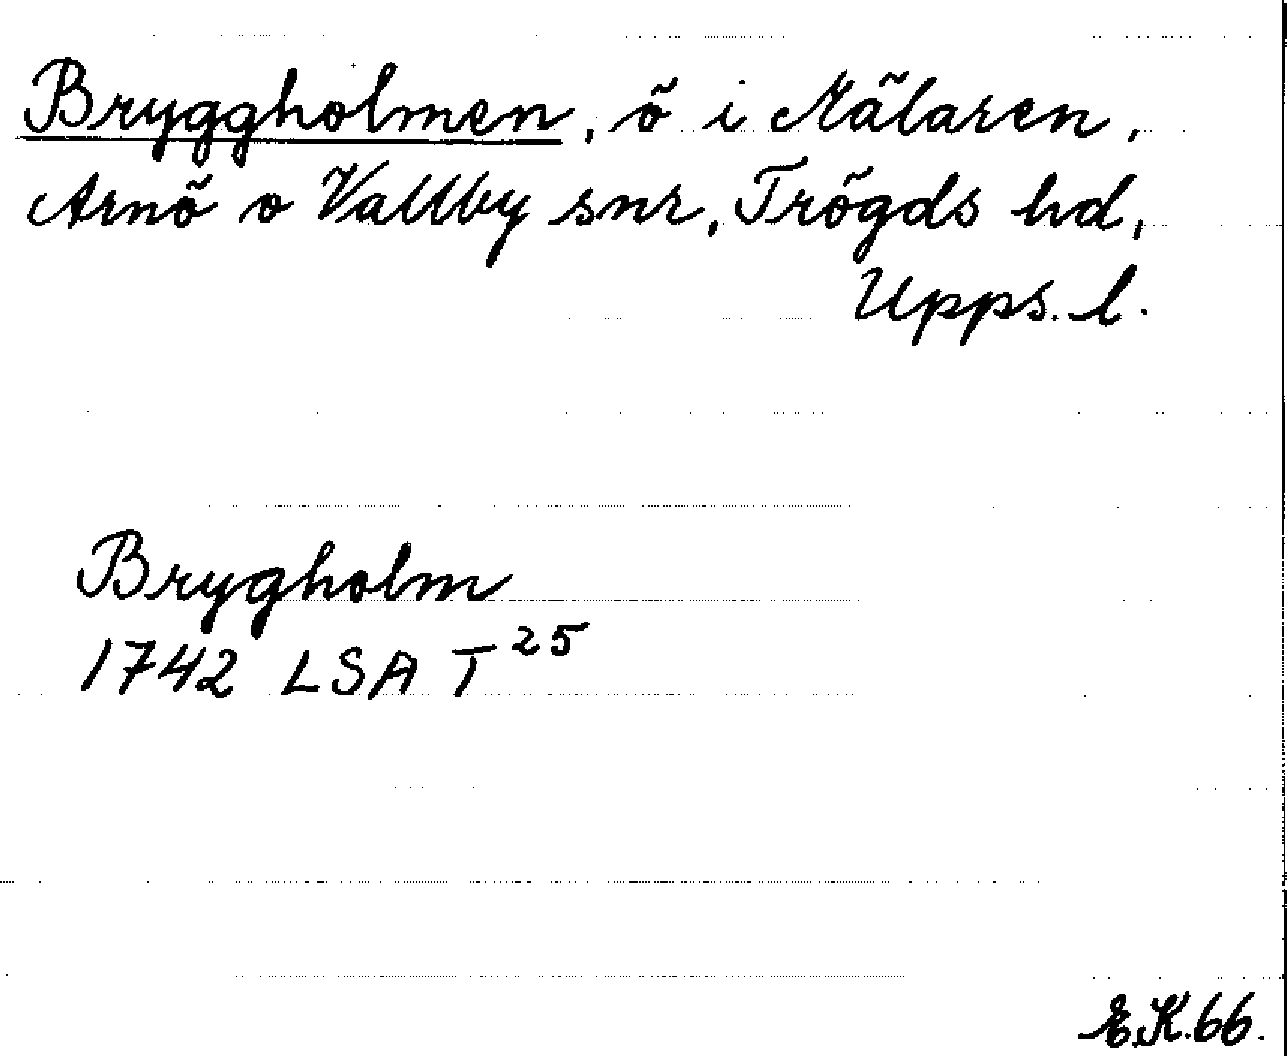 Bryggholmen, ö i Mälaren,
Arnö o Vallby snr, Trögds hd,
Upps. l.
Brygholm
1742 LSA T 25
E.K. 66.